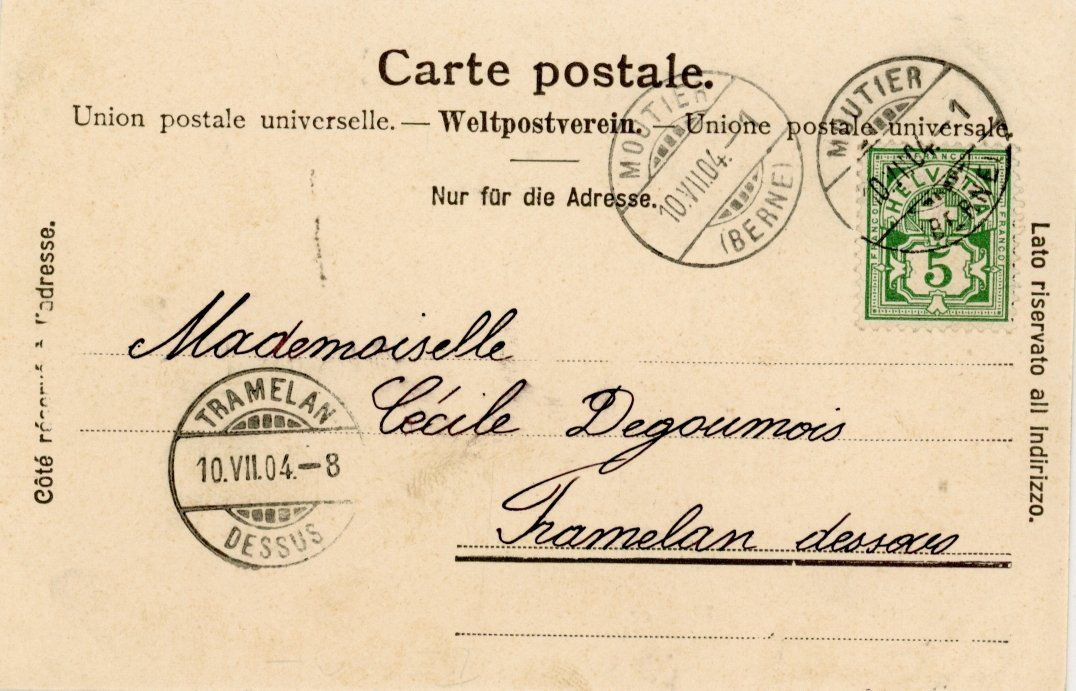 Carte postale.
Union postale universelle. — Weltpostverein. — Unione postale universale
Nur für die Adresse.
MOUTIER
10.VII.04.–1
(BERNE)
MOUTIER
10.VII.04.–1
(BERNE)
FRANCO
HELVETIA
FRANCO
FRANCO
5
Côté l'adresse.
Lato riservato all indirizzo.
Mademoiselle
Cécile Degoumois
Tramelan dessous
TRAMELAN
10.VII.04.–8
DESSUS